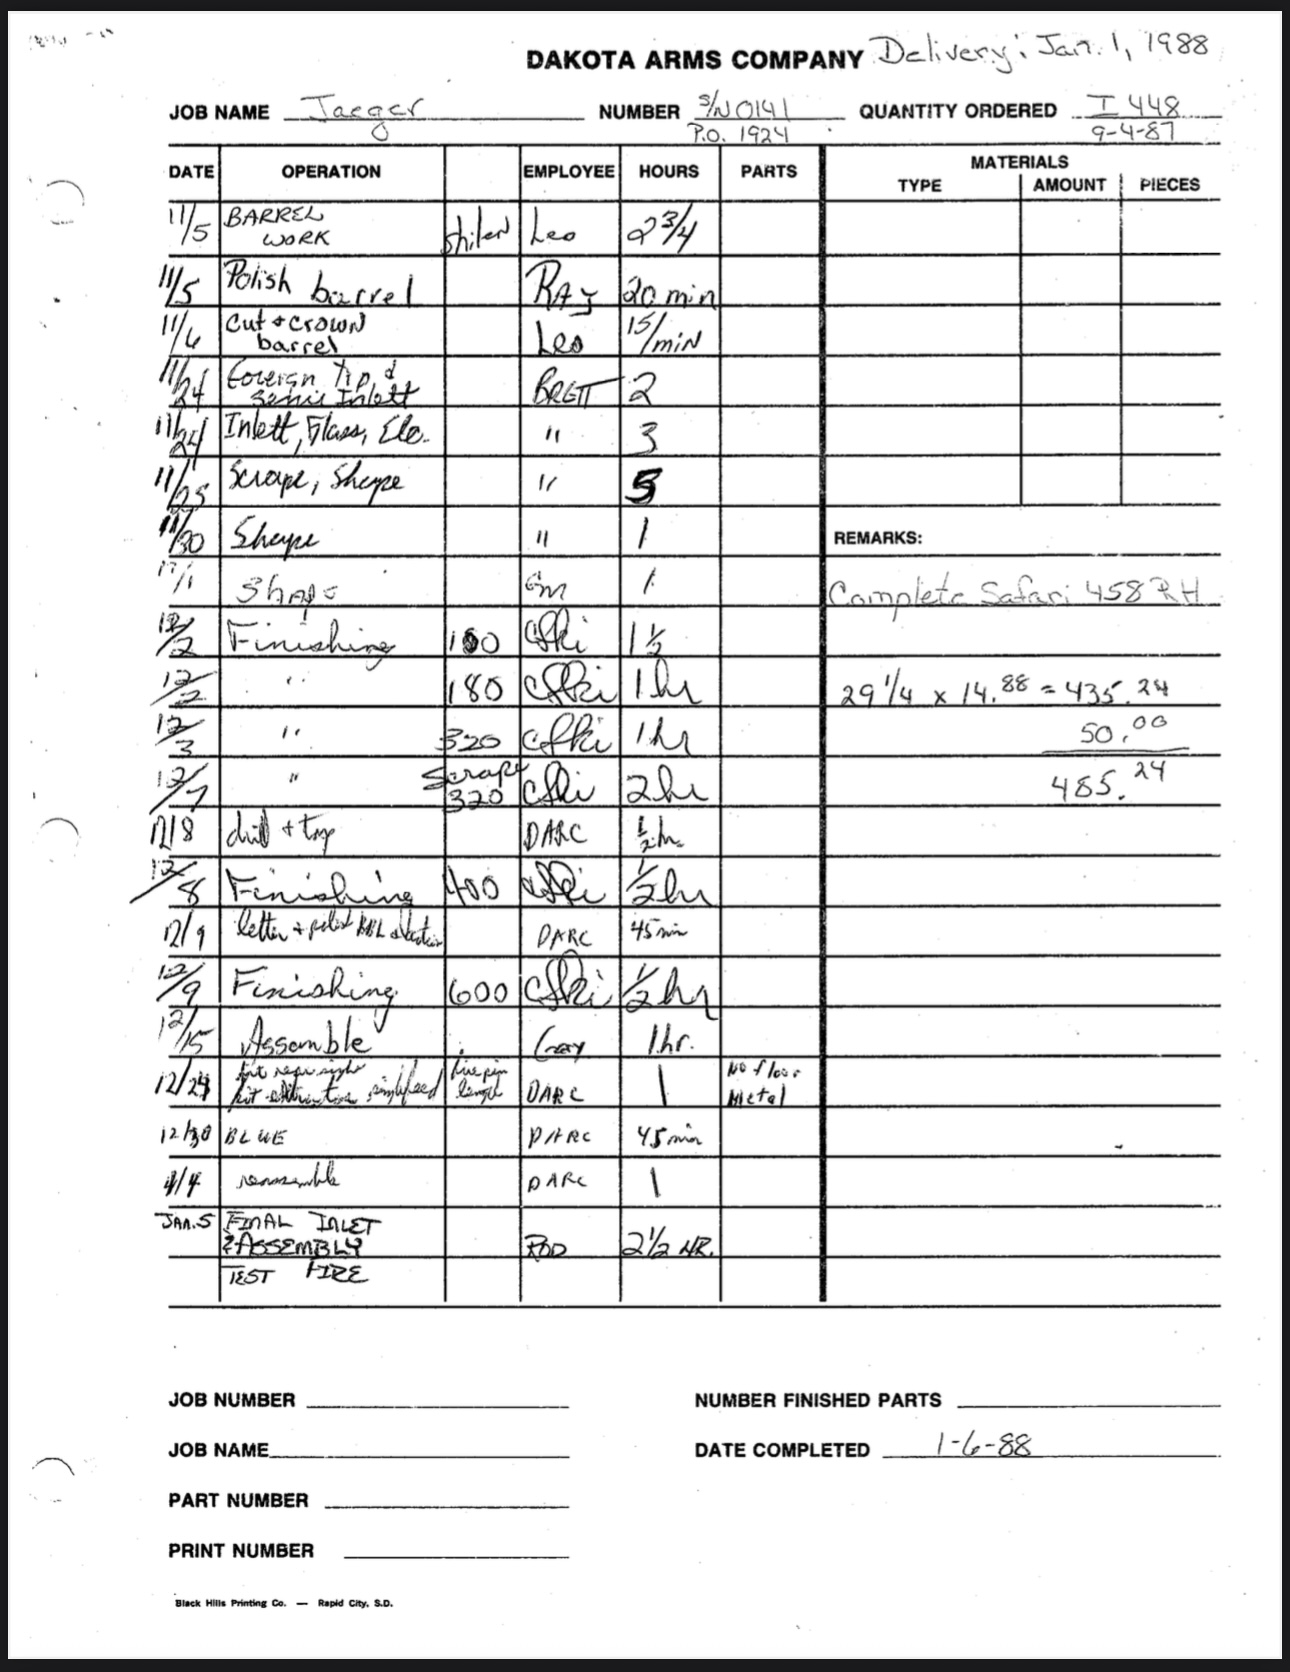 DAKOTA ARMS COMPANY Delivery: Jan. 1, 1988
JOB NAME Jaeger NUMBER S/N 0141 QUANTITY ORDERED I 448
P.O. 1924 9-4-87
MATERIALS
DATE OPERATION EMPLOYEE HOURS PARTS TYPE AMOUNT PIECES
11/5 BARREL WORK Shilen Leo 2 3/4
11/5 Polish barrel RAY 20 min
11/6 Cut + crown barrel Leo 15/min
11/24 tip & Semie Inlett BRETT 2
11/24 Inlett, Glass, Etc. " 3
11/25 Scrape, Shape " 5
11/30 Shape " 1
REMARKS:
12/1 Shape 1
Complete Safari 458 RH
12/2 Finishing 180 1 1/2
12/2 " 180 1 hr
29 1/4 x 14.88 = 435.24
12/3 " 320 1 hr
50.00
12/7 " Scrape 320 2 hr
485.24
12/8 drill + tap DARC 1/2 hr.
12/8 Finishing 400 1/2 hr
12/9 letter + polish BBL DARC 45 min
12/9 Finishing 600 1/2 hr
12/15 Assemble 1 hr.
12/29 fit rear sight length DARC 1 No floor Metal
12/30 BLUE DARC 45 min
1/4 reassemble DARC 1
JAN. 5 FINAL INLET & ASSEMBLY ROD 2 1/2 HR.
TEST FIRE
JOB NUMBER NUMBER FINISHED PARTS
JOB NAME DATE COMPLETED 1-6-88
PART NUMBER
PRINT NUMBER
Black Hills Printing Co. — Rapid City, S.D.